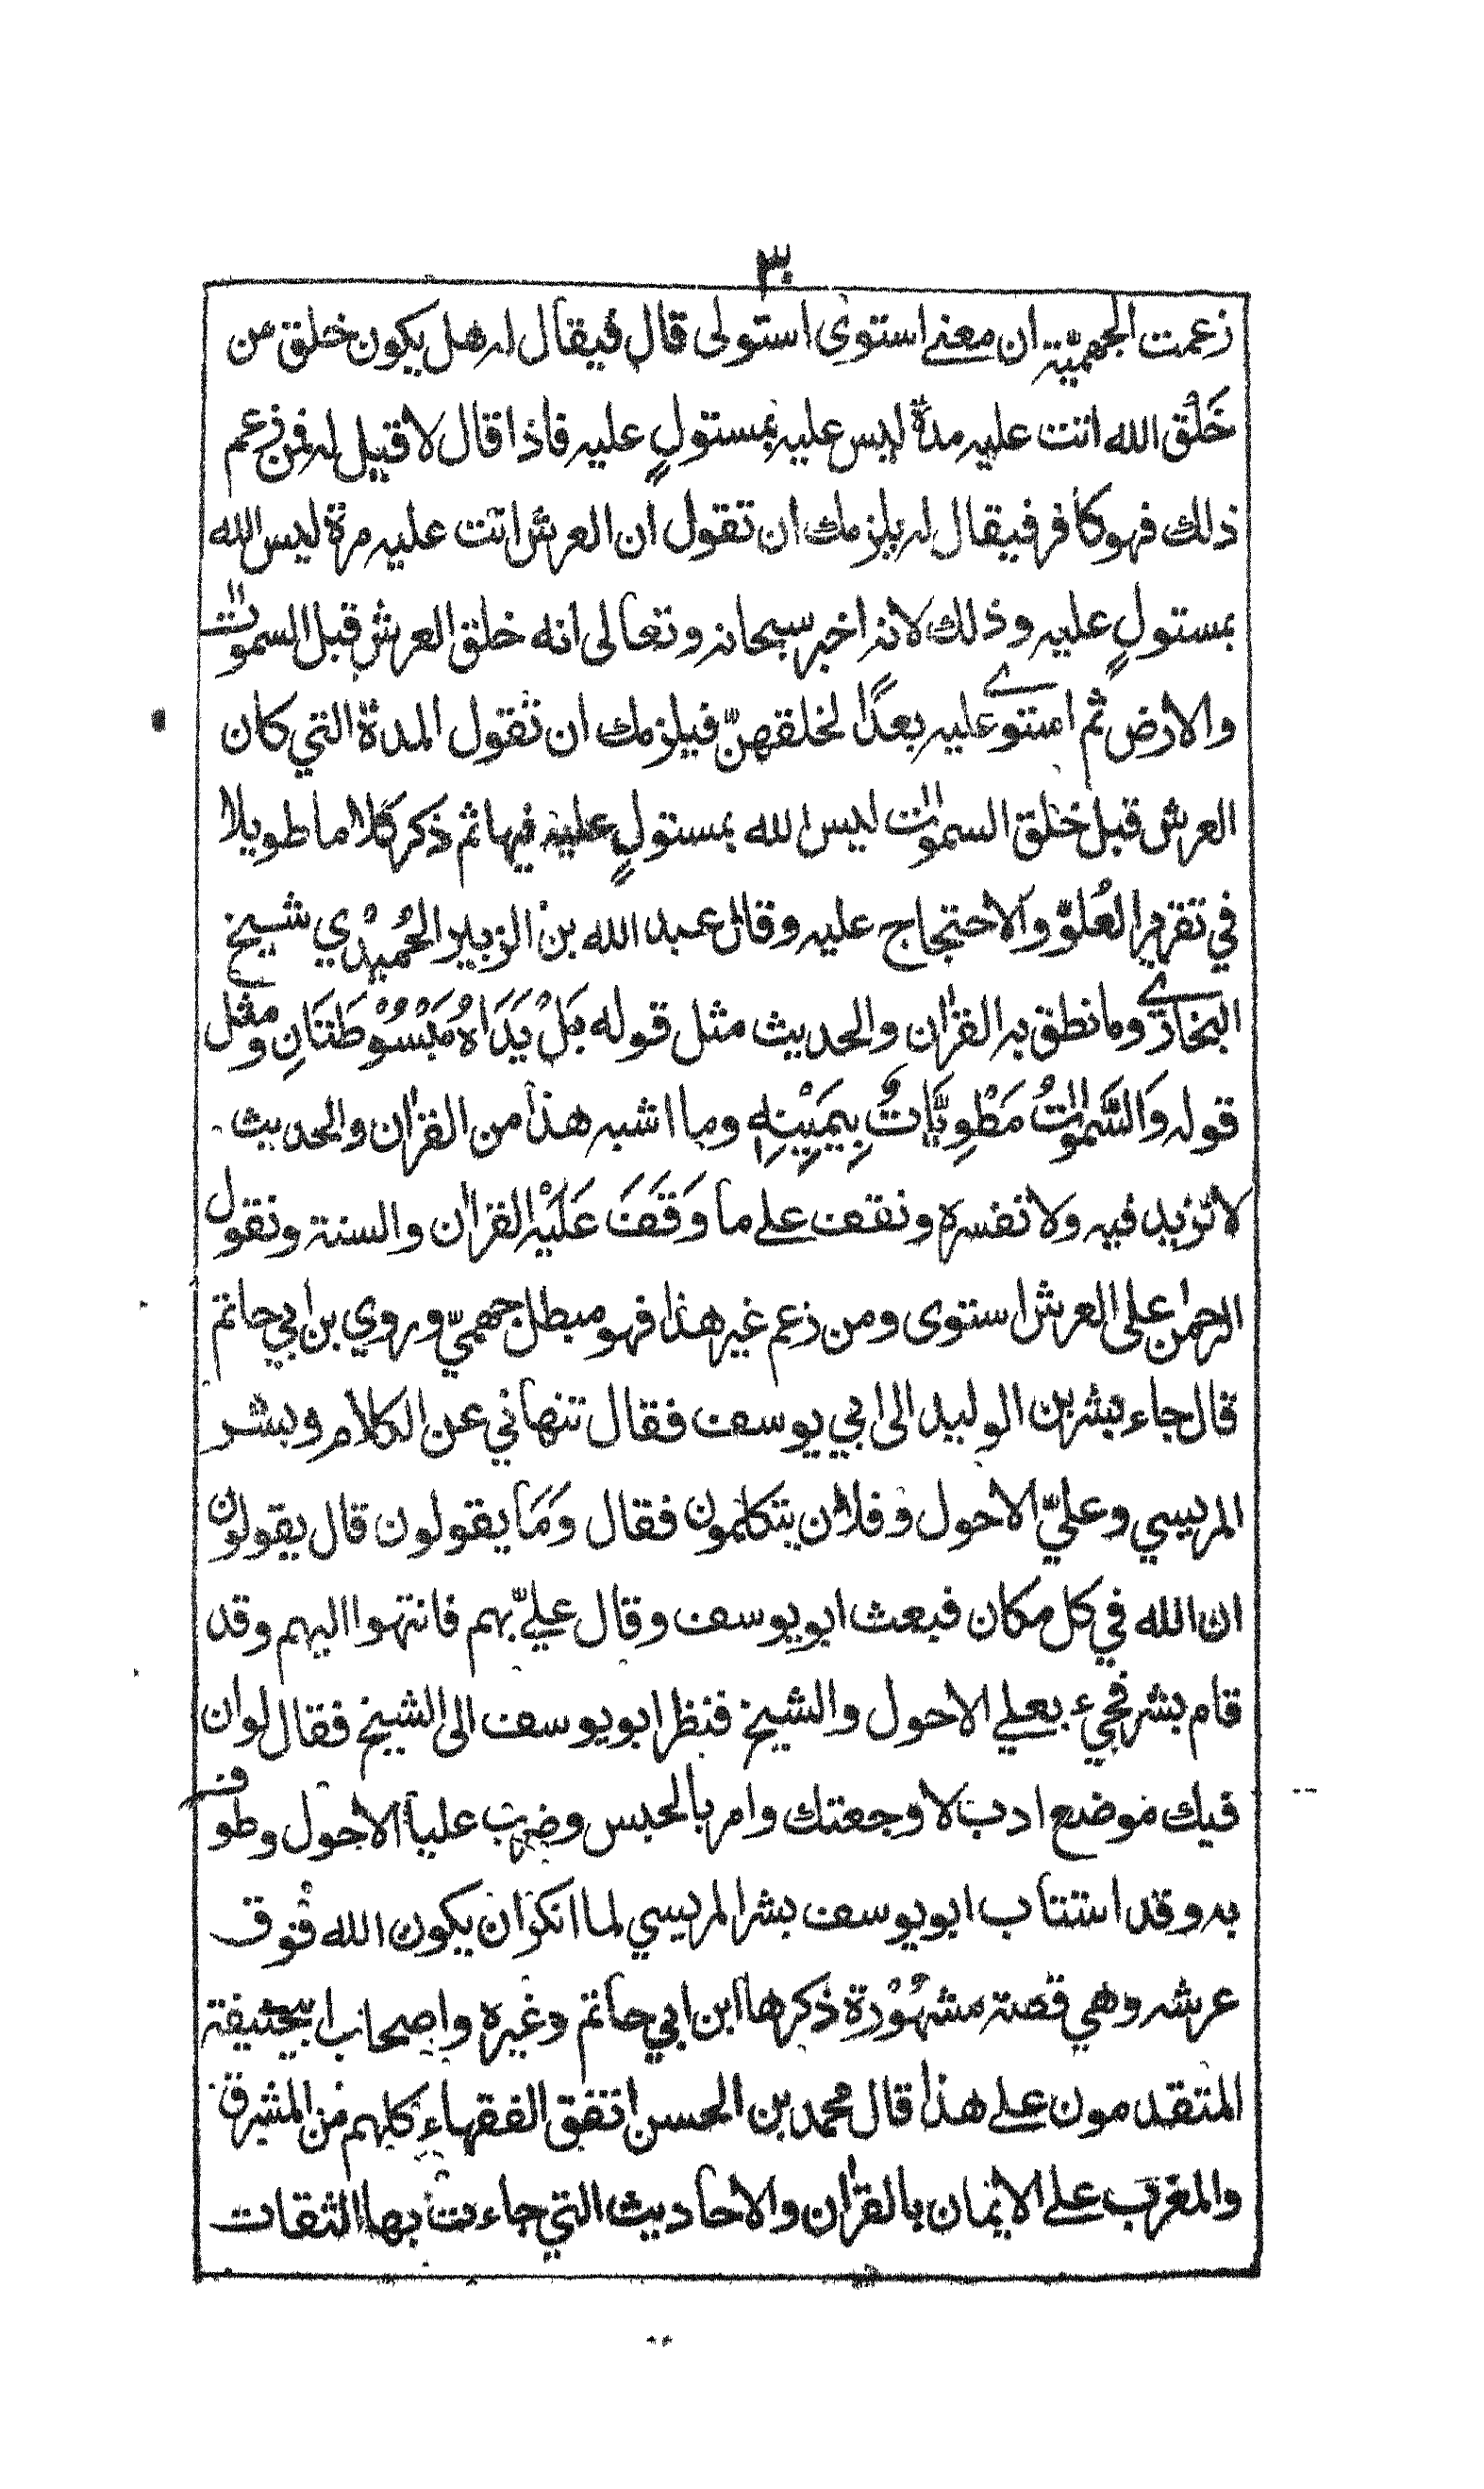 ٣
زعمت الجهميّة ان معنے استوى استولى قال فيقال له هل يكون خلق من
خَلْق الله اتت عليه مدة ليس عليه بمستولٍ عليه فاذا قال لا قيل له فمن زعم
ذلك فهو كافر فيقال له يلزمك ان تقول ان العرش اتت عليه مرة ليس الله
بمستولٍ عليه وذلك لانه اخبر سبحانه وتعالى انه خلق العرش قبل السموٰت
والارض ثم استوے عليه بعدَا لخلقهنّ فيلزمك ان تقول المدة التي كان
العرش قبل خلق السموٰت ليس الله بمستولٍ عليه فيها ثم ذكر كلاما طويلا
في تقرير العُلوّ والاحتجاج عليه وقال عبد الله بن الزبير الحُميْدي شيخ
البخارے وما نطق به القرٰان والحديث مثل قوله بَلْ يَدَاهُ مَبْسُوْطَتَانِ ومثل
قوله وَالسَّمٰوٰتُ مَطْوِيَّاتٌ بِيَمِيْنِهٖ وما اشبه هذا من القرٰان والحديث
لا نزيد فيه ولا نفسره ونقف علے ما وَقَفَ عَلَيْه القرٰان والسنة ونقول
الرحمٰن على العرش استوى ومن زعم غير هذا فهو مبطل جهميّ وروي بن ابي حاتم
قال جاء بشر بن الوليد الى ابي يوسف فقال تنهاني عن الكلام وبشر
المريسي وعليّ الاحول وفلان يتكلمون فقال وَمَا يقولون قال يقولون
ان الله في كل مكان فبعث ابو يوسف وقال عليّ بهم فانتهوا اليهم وقد
قام بشر فجيء بعلي الاحول والشيخ فنظر ابو يوسف الى الشيخ فقال لو ان
فيك موضع ادب لاوجعتك وامر بالحبس وضرب علياً الاحول وطوف
به وقد استتاب ابو يوسف بشر المريسي لما انكر ان يكون الله فوق
عرشه وهي قصة مشهُوْرة ذكرها ابن ابي حاتم وغيره واصحاب ابيحنيفة
المتقدمون علے هذا قال محمد بن الحسن اتفق الفقهاء كلهم من المشرق
والمغرب علے الايمان بالقرٰان والاحاديث التي جاءت بها الثقات